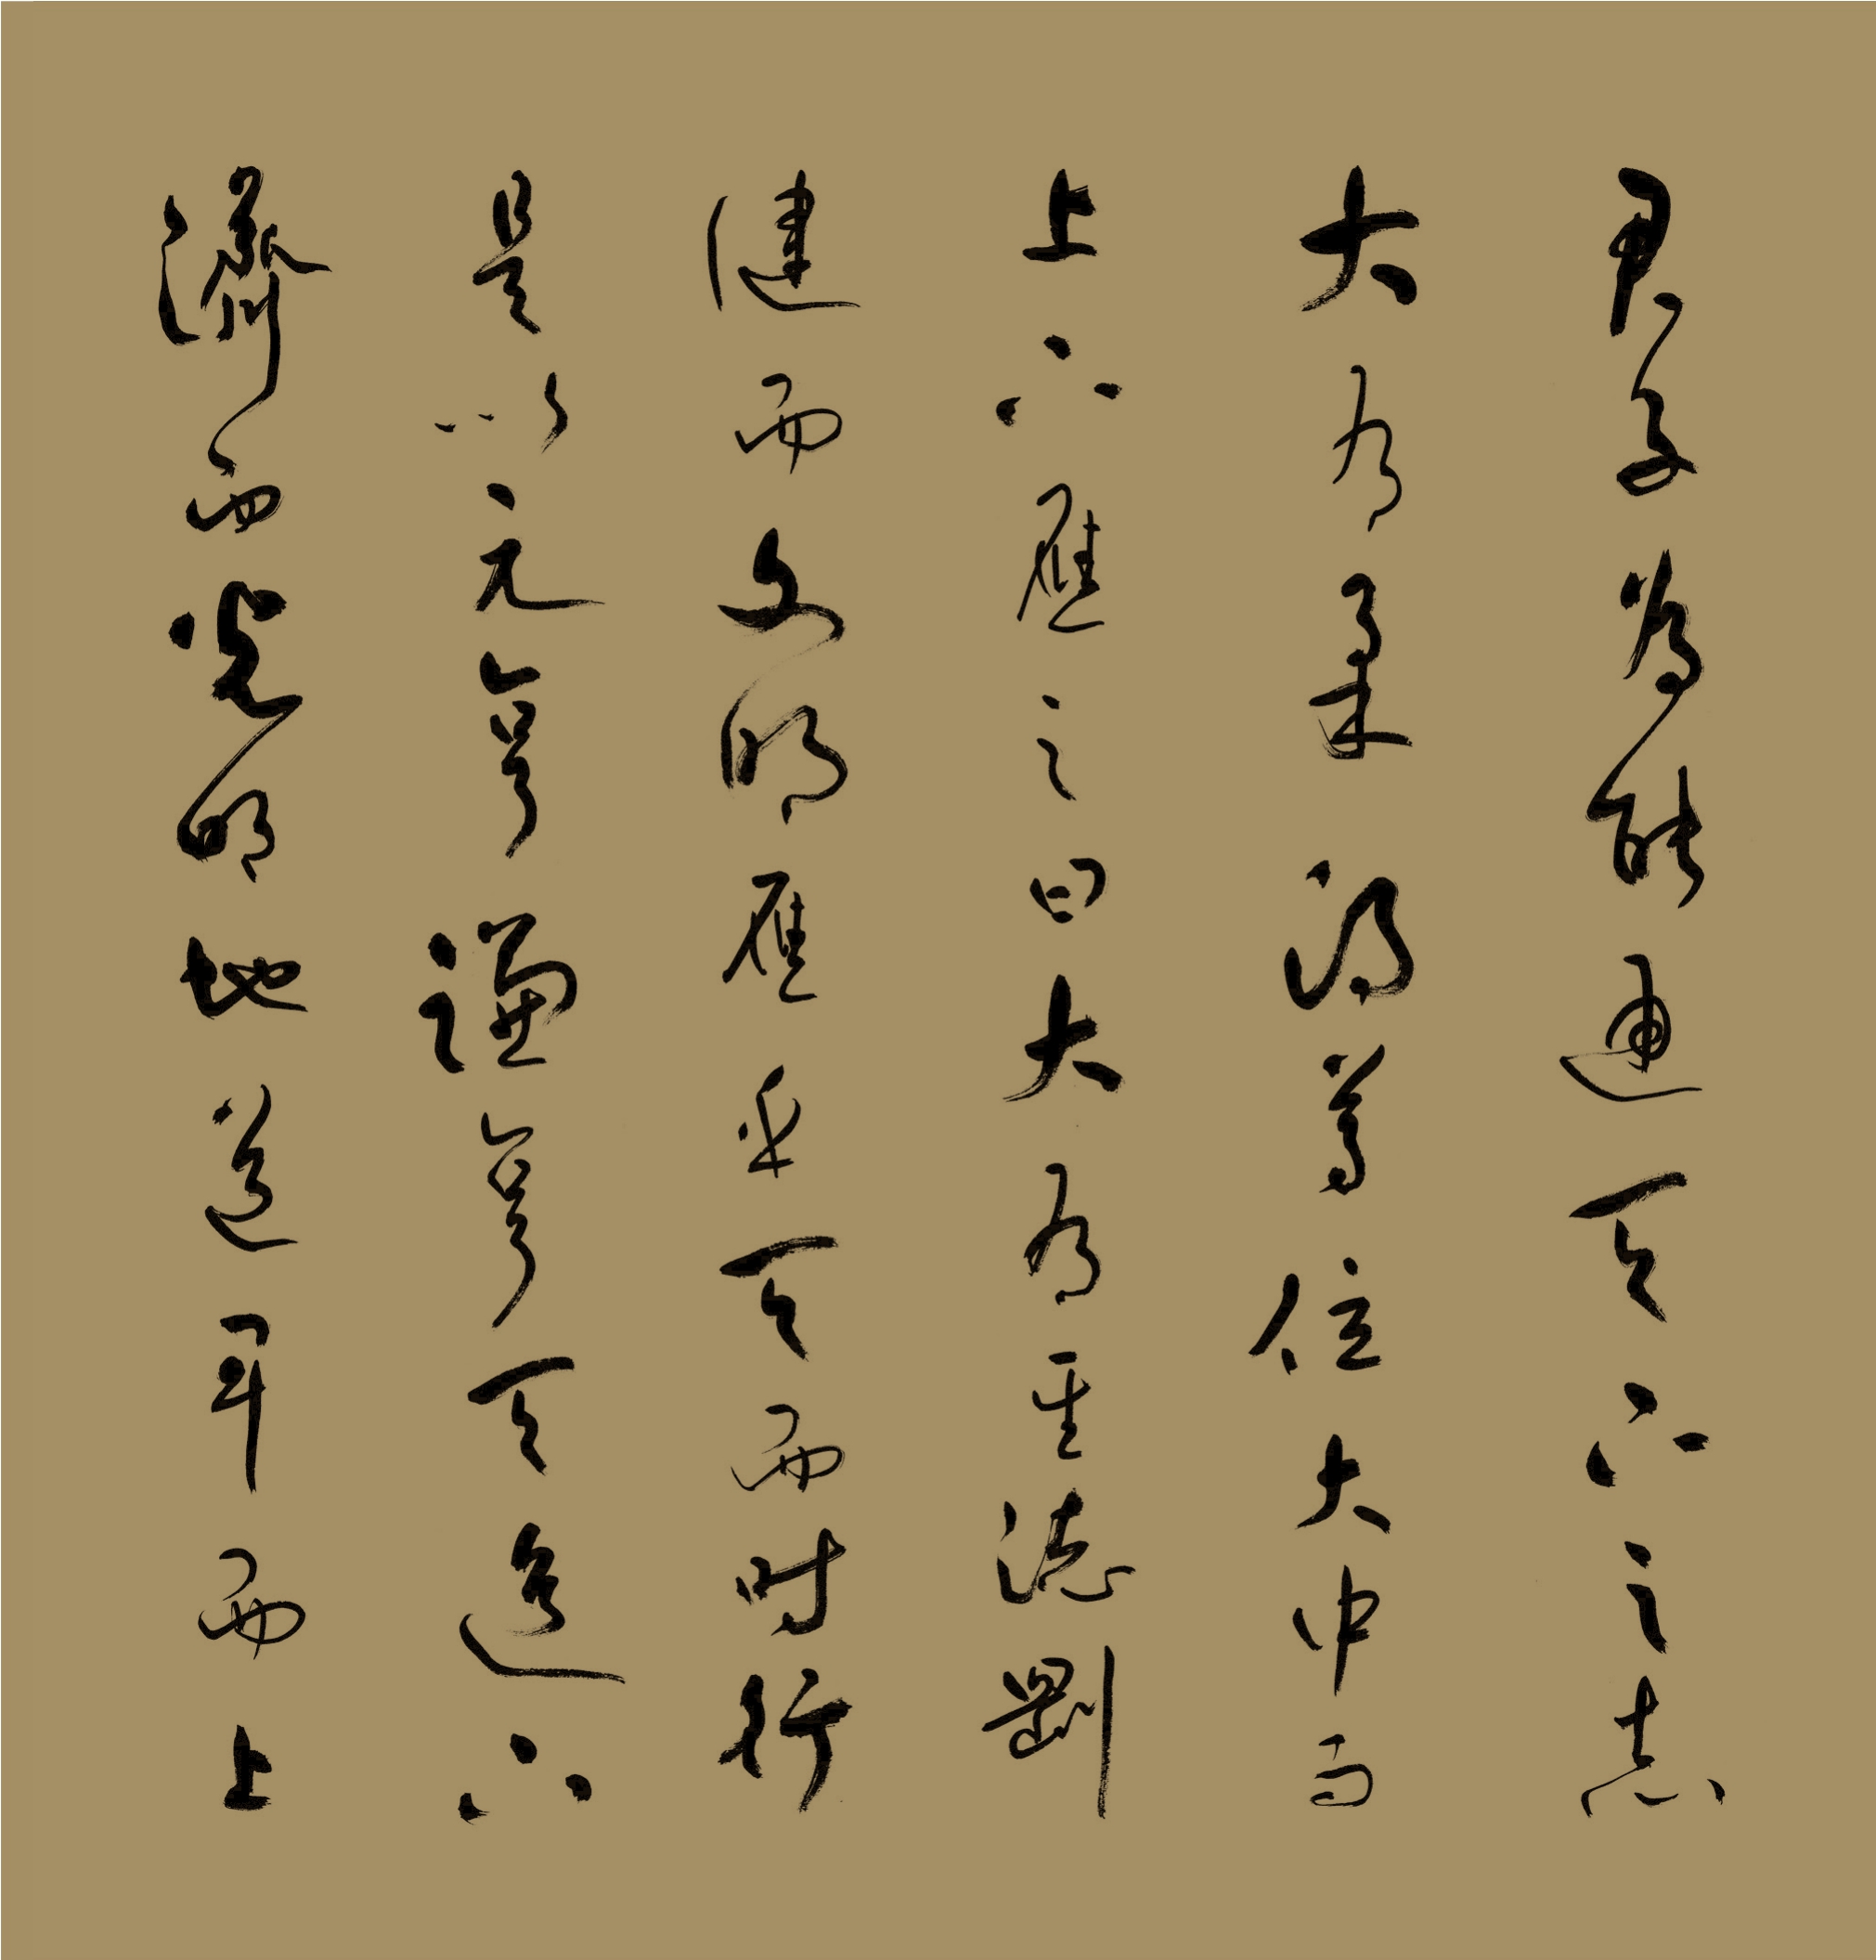 君子為能通天下之志
大有柔得尊位大中而
上下應之曰大有其德剛
健而文明應乎天而時行
是以元亨謙亨天道下
濟而光明地道卑而上